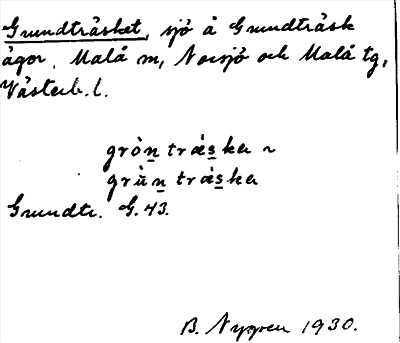 Grundträsket, sjö å Grundträsk
ägor, Malå sn, Norsjö och Malå tg,
Västerb. l.
gròn träska ~
grùn träska
Grundtr. G. 43.
B. Nygren 1930.